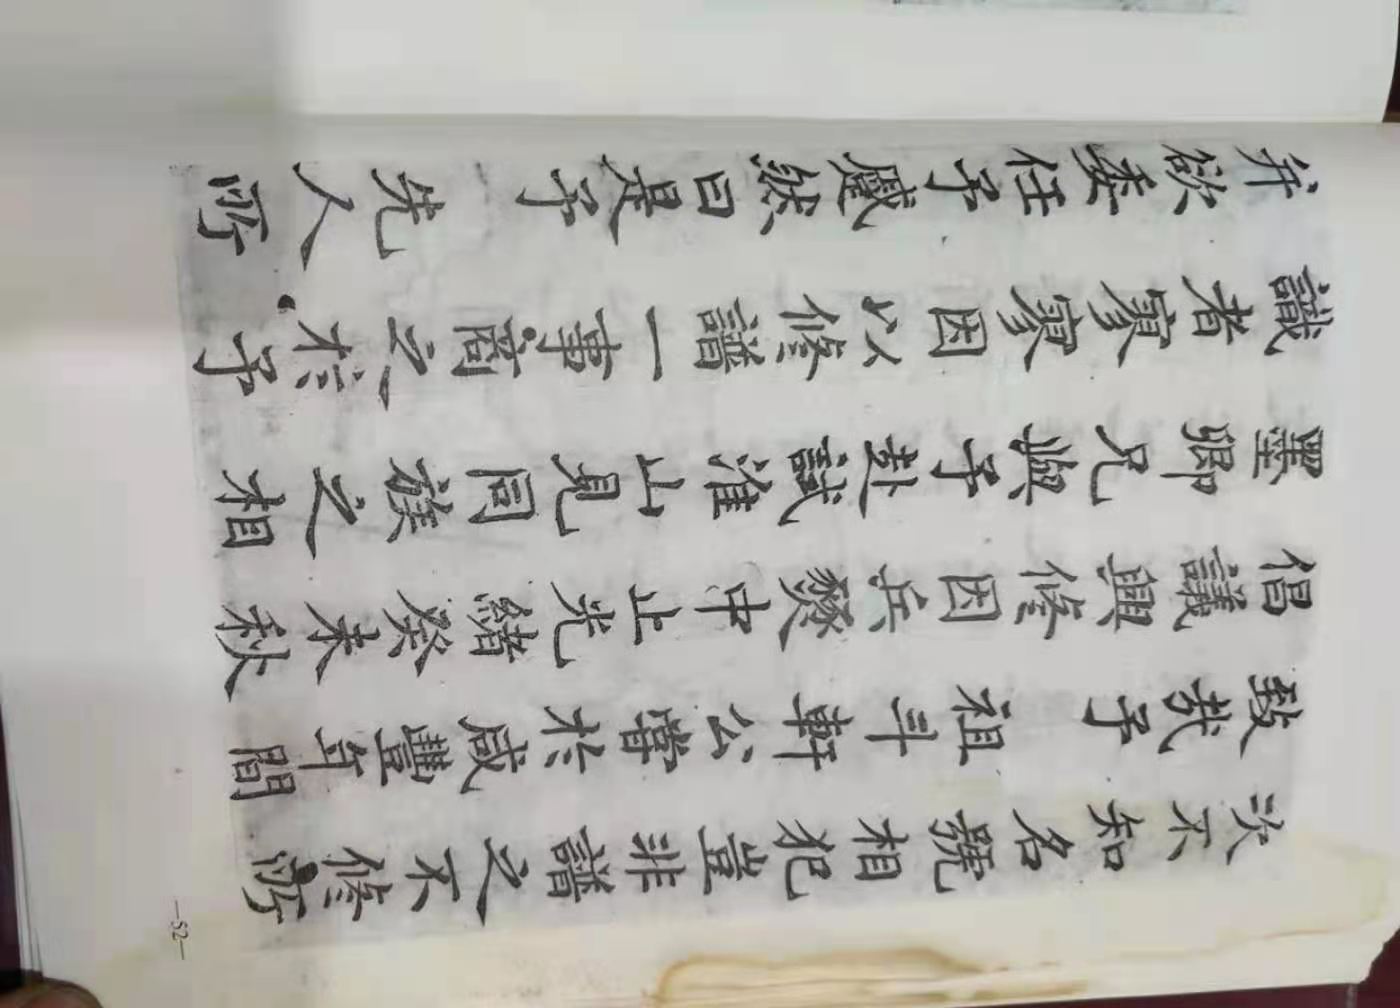 次不知名號相犯豈非譜之不修所
致哉予 祖斗軒公嘗於咸豐年間
倡議興修因兵發中止光緒癸未秋
墨卿兄與予赴試淮山見同族之相
識者寥寥因以修譜一事商之於予
并欲委任予蹙然曰是予 先人所
—52—